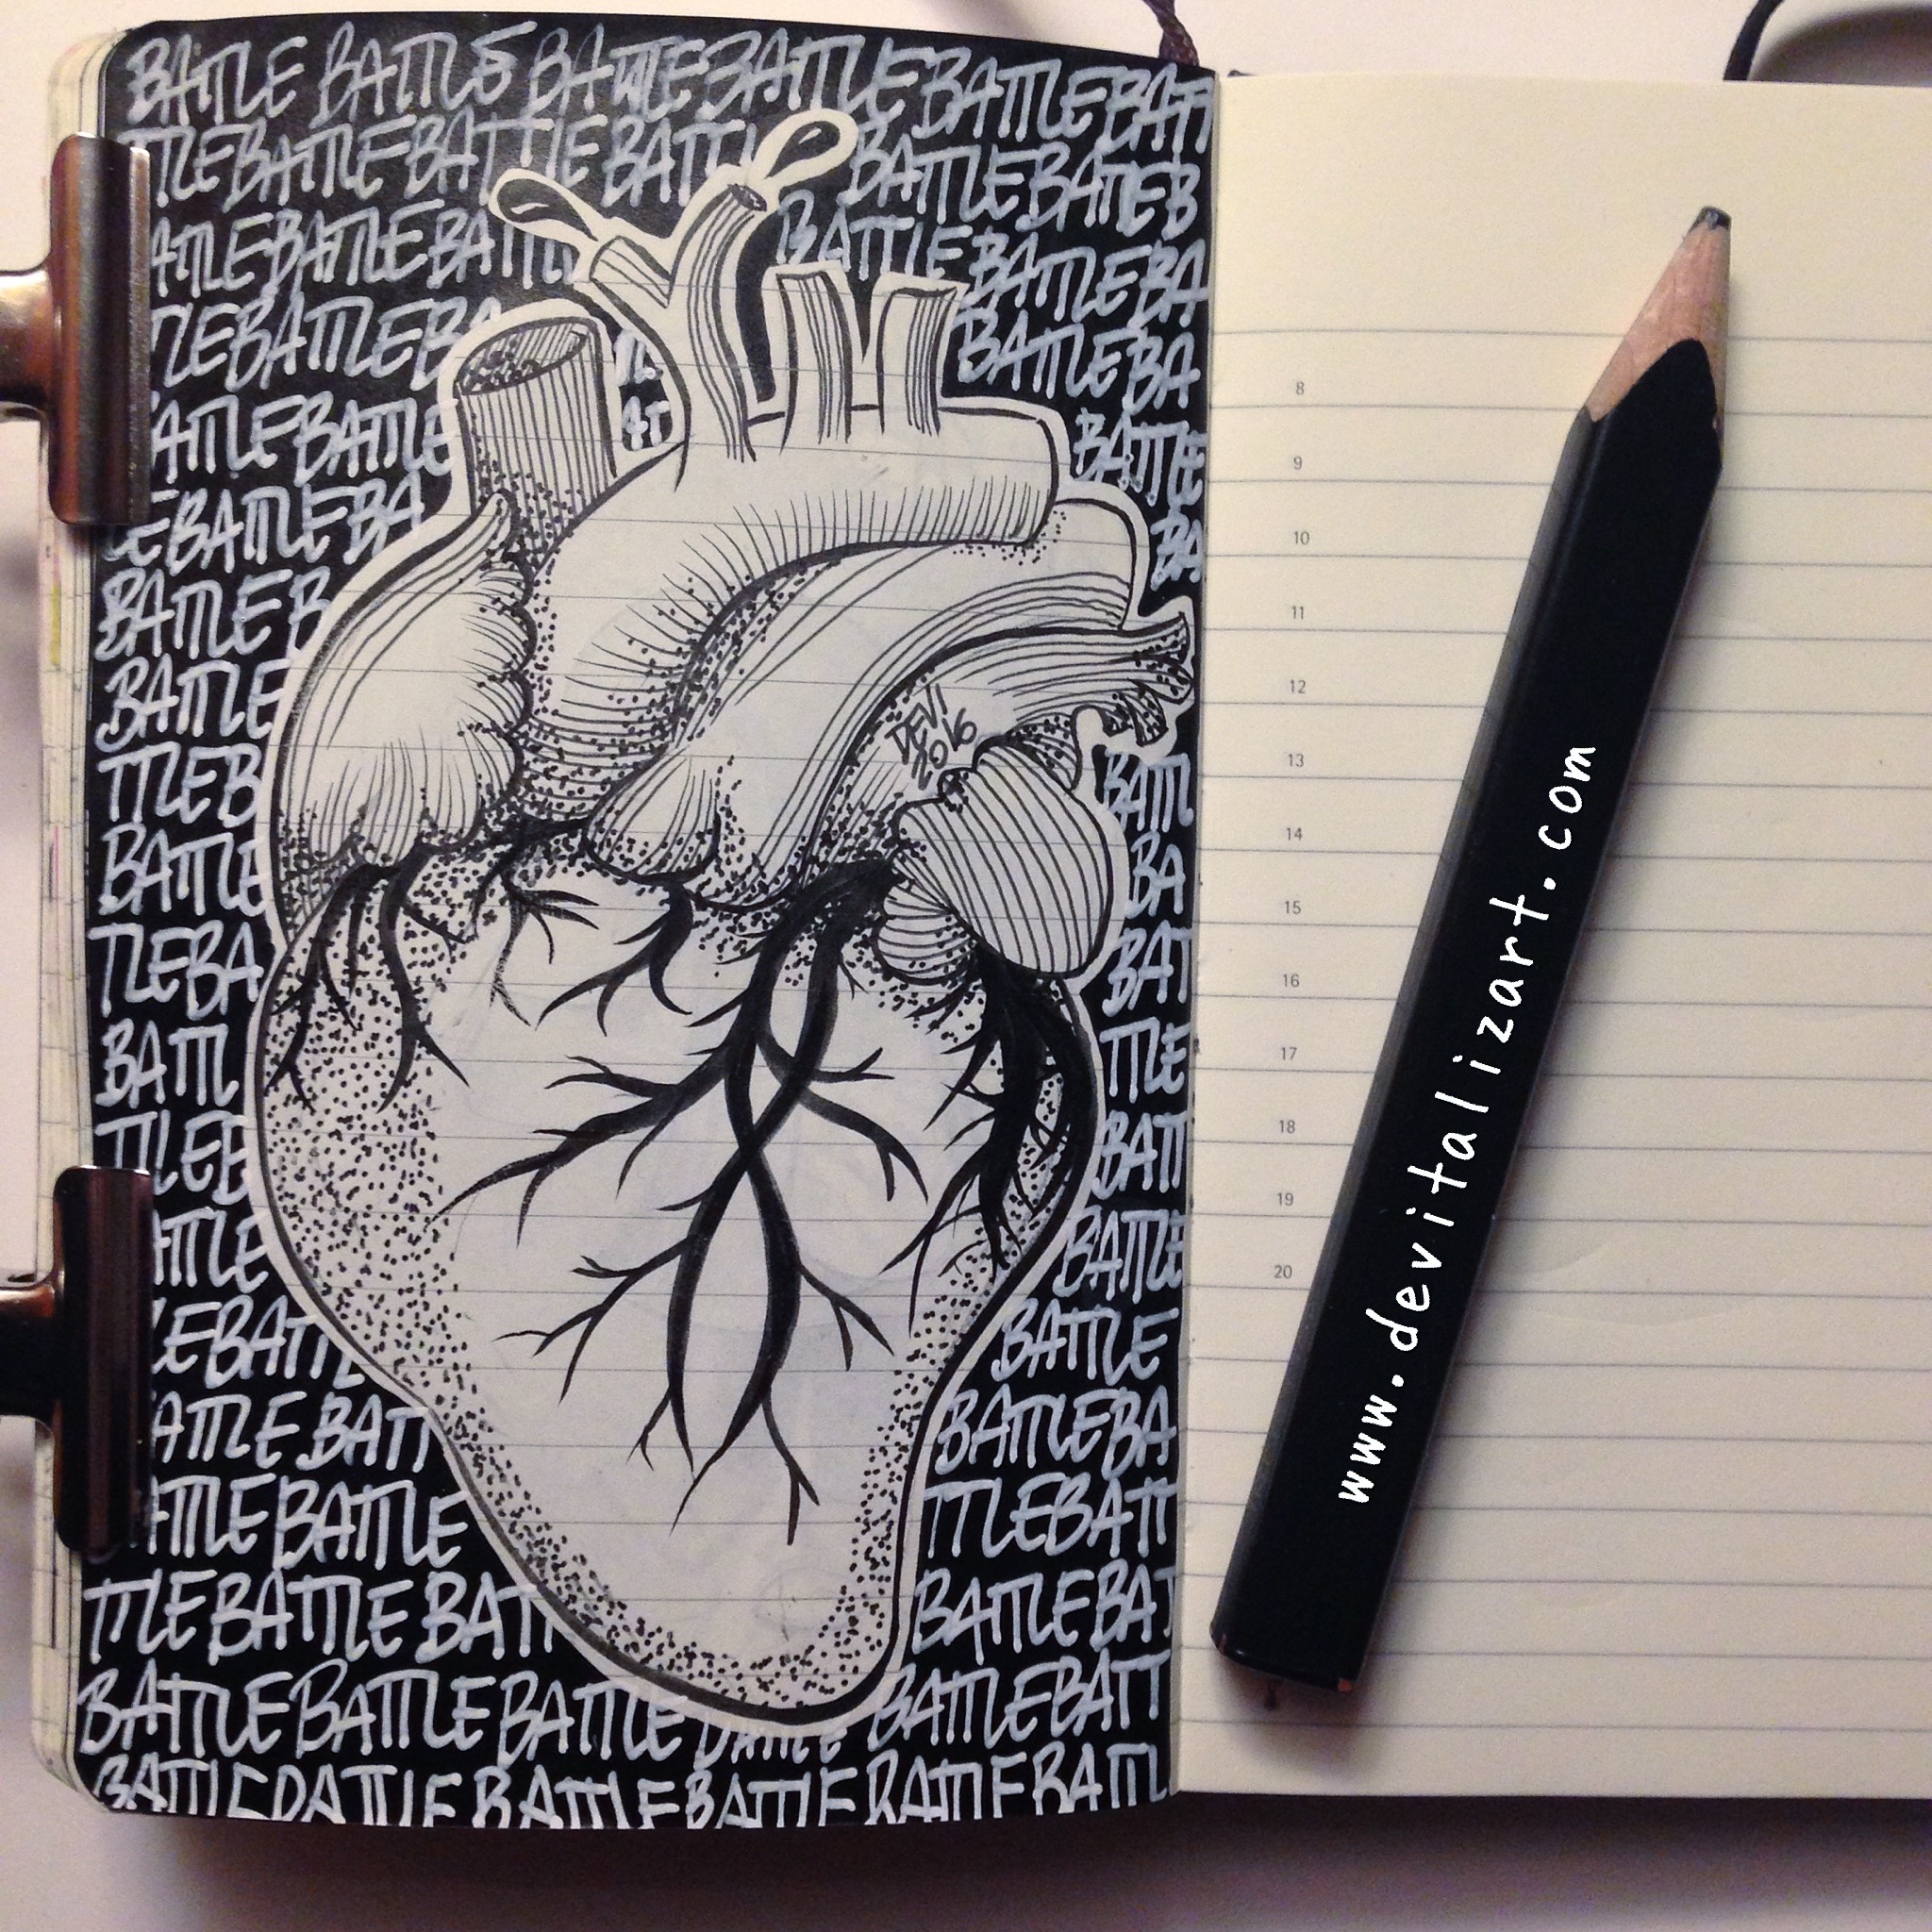 BATTLE BATTLE BATTLE BATTLE BATTLE BATT
TLE BATTLE BATTLE BATTL BATTLE BATTLE B
ATTLE BATTLE BATTL BATTLE BATTLE BA
TLE BATTLE BA BATTLE BA
TL
ATTLE BATTLE AT BATTLE
E BATTLE BA BA
BATTLE B
BATTLE
TTLE B BATTL
BATTLE BA
TLE BA BAT
BATTL TTLE
TTLE B BATT
ATTLE BATTLE
LE BATT BATTLE
ATTLE BATT BATTLE BA
ATTLE BATTLE TTLE BATT
TTLE BATTLE BATT BATTLE BAT
BATTLE BATTLE BATTLE BATTLE BATTLE BATT
BATTLE BATTLE BATTLE BATTLE BATTLE BATTL
DEVI
2016
8
9
10
11
12
13
14
15
16
17
18
19
20
www.devitalizart.com